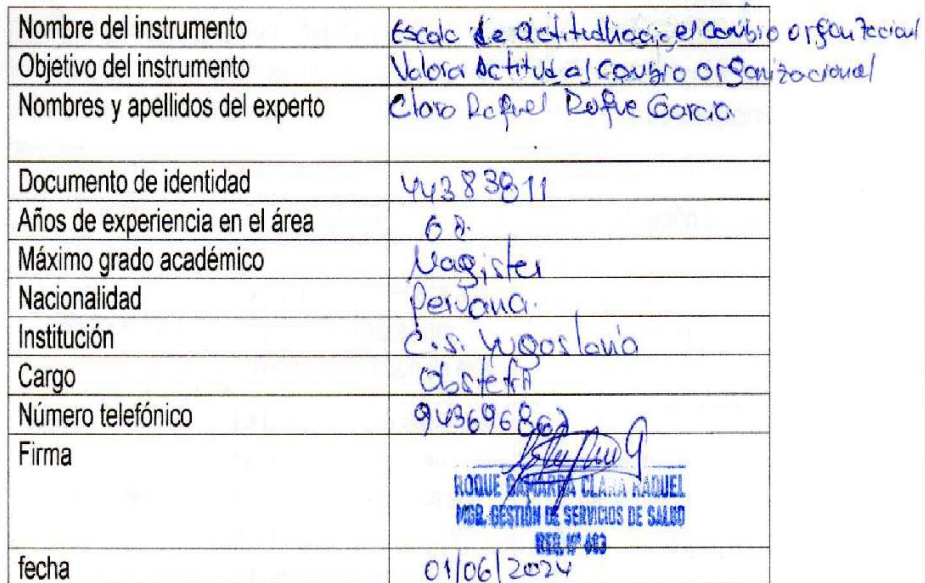 Nombre del instrumento Escala de actitud hacia el cambio organizacional
Objetivo del instrumento Valorar Actitud al Cambio organizacional
Nombres y apellidos del experto Clara Raquel Roque Garcia
Documento de identidad 44383811
Años de experiencia en el área 6 a.
Máximo grado académico Magister
Nacionalidad Peruana.
Institución C.S. Yugoslavia
Cargo Obstetra
Número telefónico 943696862
Firma
ROQUE GAMARRA CLARA RAQUEL
MGR. GESTIÓN DE SERVICIOS DE SALUD
REG. Nº 603
fecha 01/06/2024